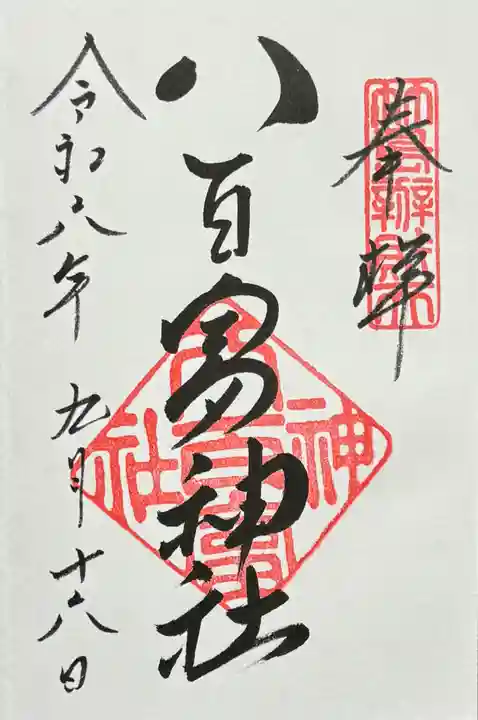 奉拝
八百富神社
令和六年 九月十六日